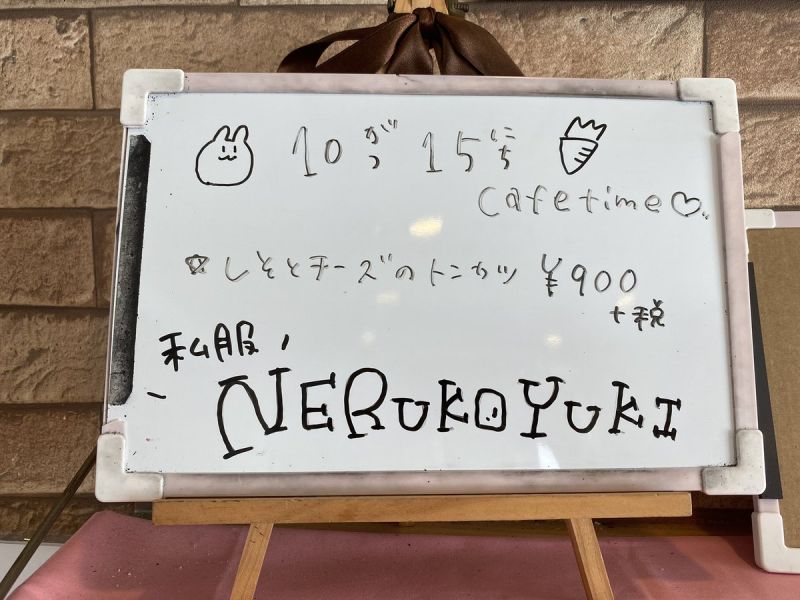 10がつ15にち
Cafetime♡
☆しそとチーズのトンカツ ¥900
+税
私服!
NERUKOYUKI